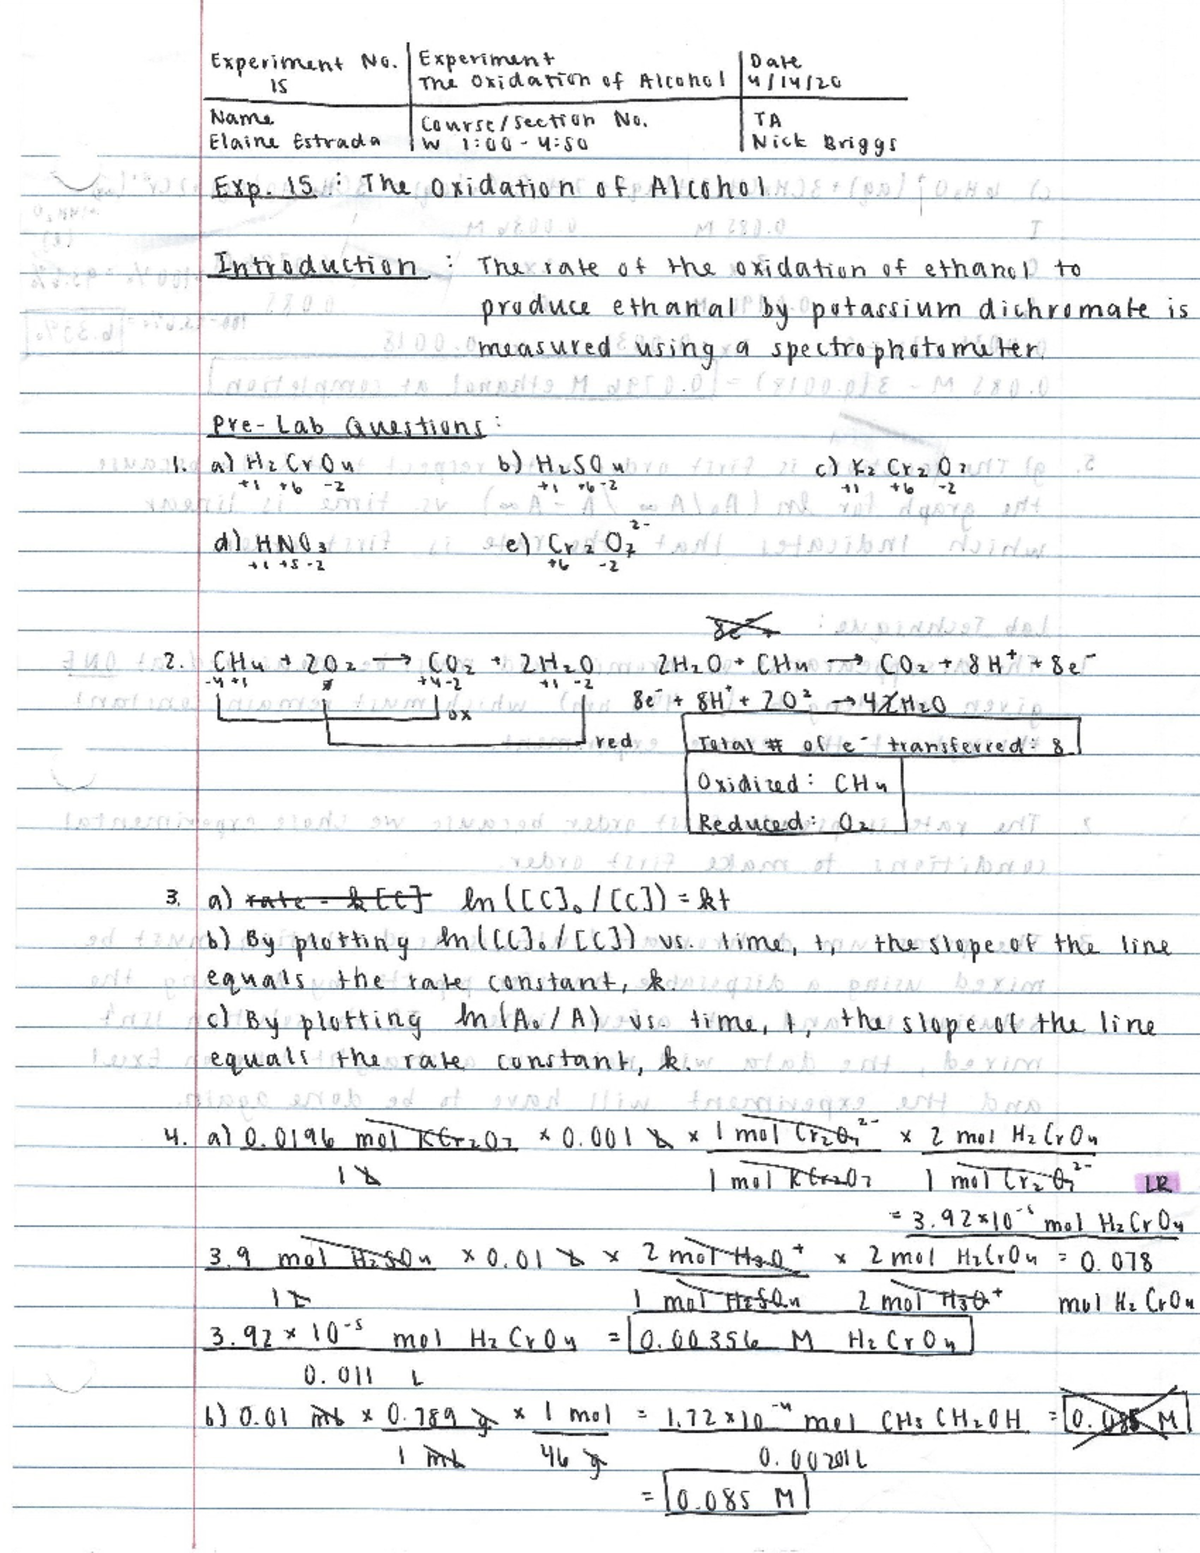 Experiment No. 15 | Experiment The Oxidation of Alcohol | Date 4/14/20
Name Elaine Estrada | Course/Section No. W 1:00-4:50 | TA Nick Briggs
Exp. 15 : The Oxidation of Alcohol
Introduction : The rate of the oxidation of ethanol to
produce ethanal by potassium dichromate is
measured using a spectrophotometer.
Pre-Lab Questions:
1. a) H₂CrO₄ b) H₂SO₄ c) K₂Cr₂O₇
+1 +6 -2 +1 +6 -2 +1 +6 -2
d) HNO₃ e) Cr₂O₇²⁻
+1 +5 -2 +6 -2
8e⁻
2. CH₄ + 2O₂ → CO₂ + 2H₂O 2H₂O + CH₄ → CO₂ + 8H⁺ + 8e⁻
-4 +1 +4 -2 +1 -2
8e⁻ + 8H⁺ + 2O² → 4H₂O
ox
red
Total # of e⁻ transferred: 8
Oxidized: CH₄
Reduced: O₂
3. a) rate = k[C] ln([C]₀/[C]) = kt
b) By plotting ln([C]₀/[C]) vs. time, t, the slope of the line
equals the rate constant, k.
c) By plotting ln(A₀/A) vs. time, t, the slope of the line
equals the rate constant, k.
4. a) 0.0196 mol KCr₂O₇ × 0.001 L × 1 mol Cr₂O₇²⁻ × 2 mol H₂CrO₄
1 L 1 mol KCr₂O₇ 1 mol Cr₂O₇²⁻ LR
= 3.92×10⁻⁵ mol H₂CrO₄
3.9 mol H₂SO₄ × 0.01 L × 2 mol H₃O⁺ × 2 mol H₂CrO₄ = 0.078
1 L 1 mol H₂SO₄ 2 mol H₃O⁺ mol H₂CrO₄
3.92 × 10⁻⁵ mol H₂CrO₄ = 0.00356 M H₂CrO₄
0.011 L
b) 0.01 mL × 0.789 g × 1 mol = 1.72×10⁻⁴ mol CH₃CH₂OH = 0.085 M
1 mL 46 g 0.00201L
= 0.085 M